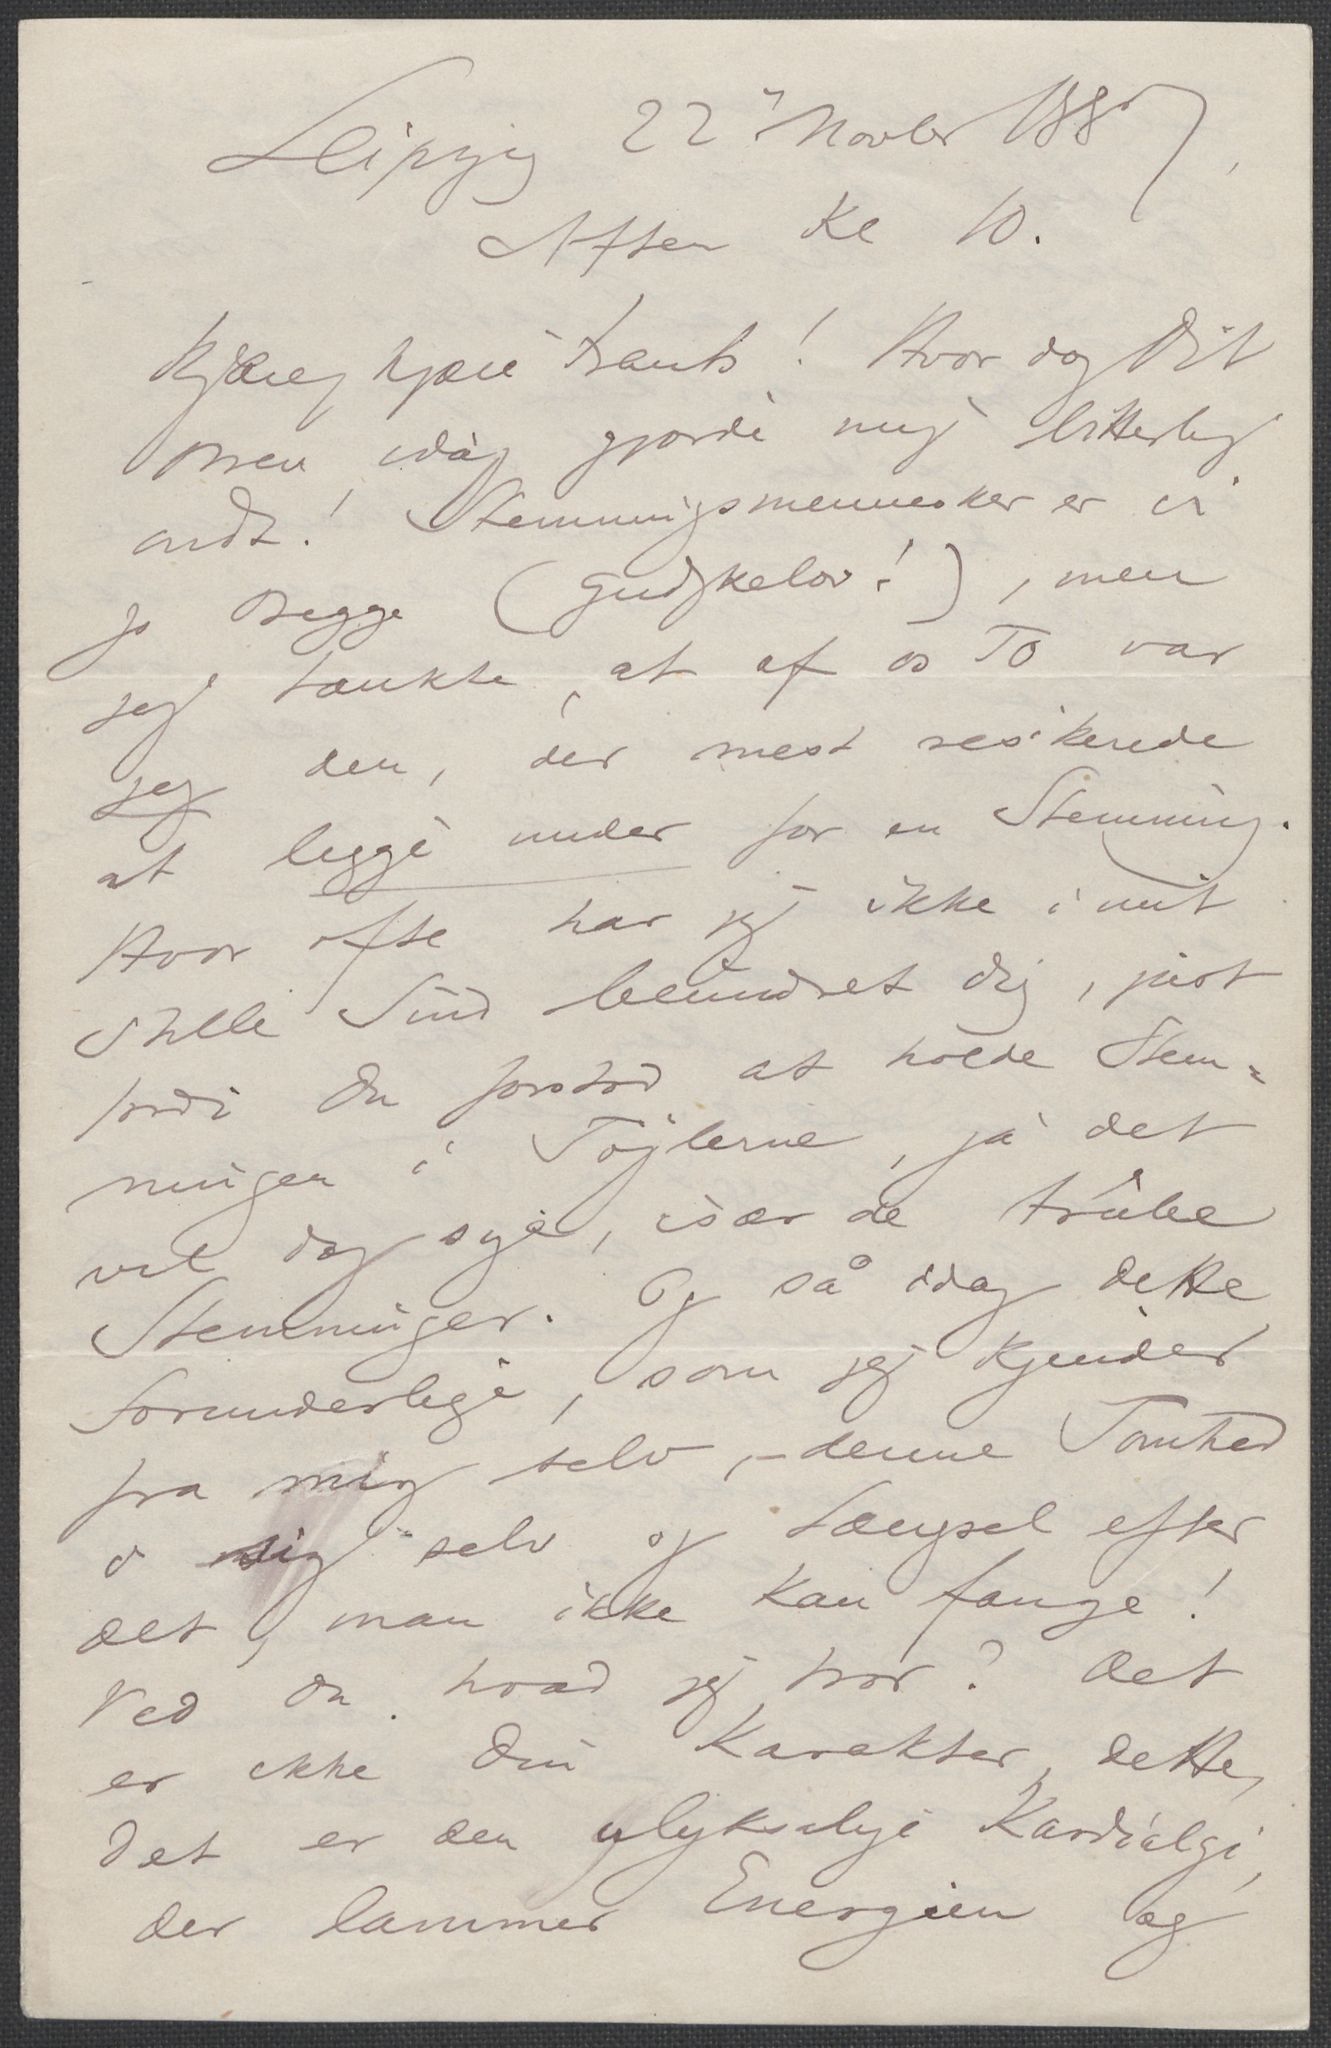 Leipzig 22' Novbr 1887,
Aften Kl 10.
Kjære, kjære Frants! Hvor dog Dit
Brev idag gjorde mig bitterlig
ondt! Stemningsmennesker er vi
jo Begge (Gudskelov!), men
jeg tænkte, at af os To var
jeg den, der mest risikerede
at ligge under for en Stemning.
Hvor ofte har jeg ikke i mit
stille Sind beundret Dig, just
fordi Du forstod at holde Stem=
ningen i Tøjlerne, ja det
vil da sige, især de triste
Stemninger. Og så idag dette
forunderlige, som jeg kjender
fra mig selv, – denne Tomhed
i sig selv og Længsel efter
det, man ikke kan fange!
Ved Du hvad jeg tror? Det
er ikke Din Karakter, dette,
det er den ulyksalige Kardialgi,
der lammer Energien og